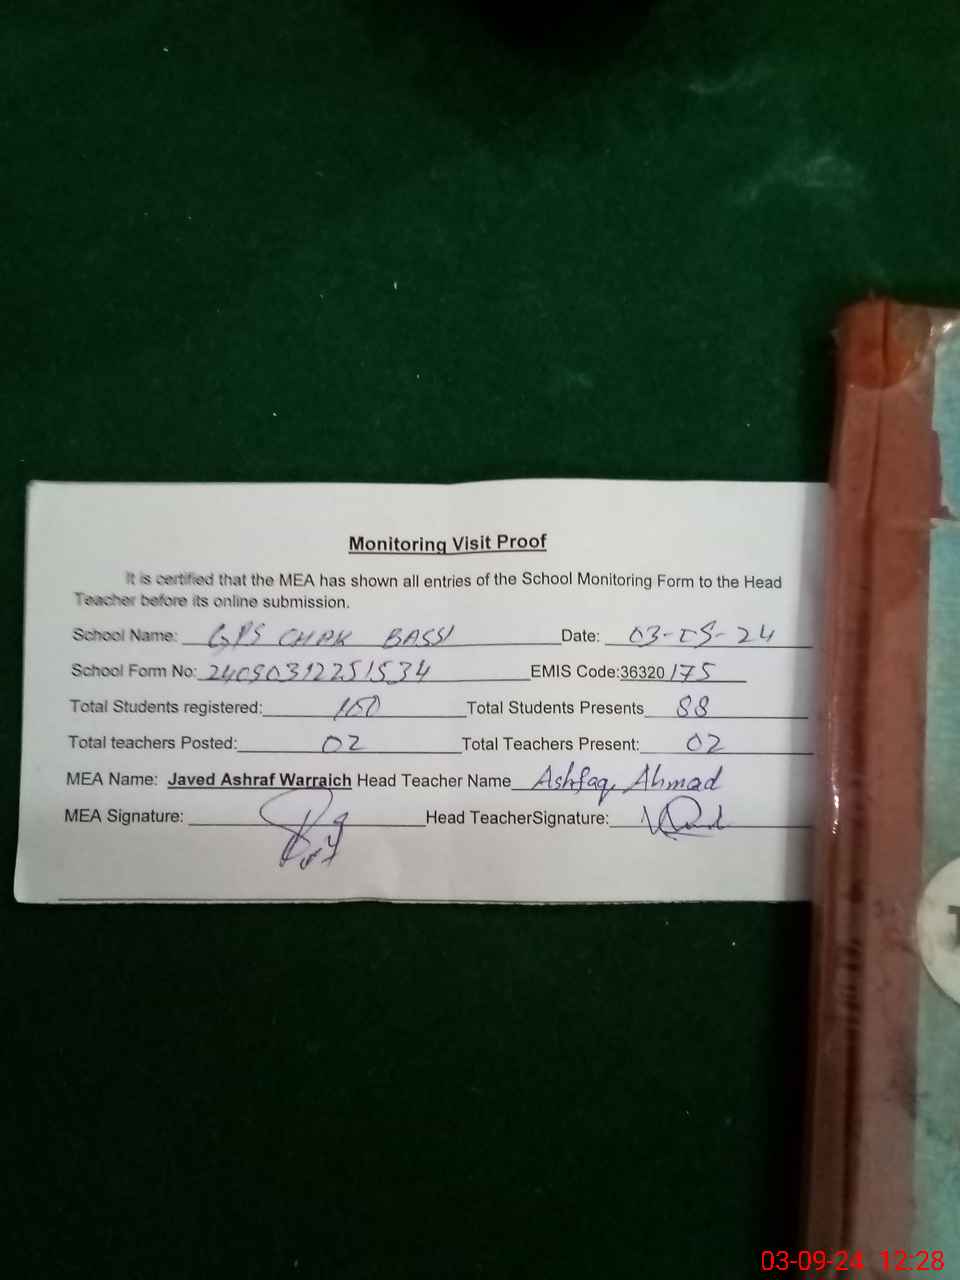 Monitoring Visit Proof
It is certified that the MEA has shown all entries of the School Monitoring Form to the Head
Teacher before its online submission.
School Name: GPS CHAK BASSI Date: 03-09-24
School Form No: 24090312251534 EMIS Code:36320175
Total Students registered: 100 Total Students Presents 88
Total teachers Posted: 02 Total Teachers Present: 02
MEA Name: Javed Ashraf Warraich Head Teacher Name Ashfaq Ahmad
MEA Signature: Head TeacherSignature:
03-09-24 12:28